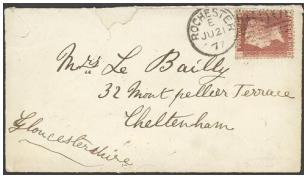 ROCHESTER
E
JU 21
77
Mrs Le Bailly
32 Montpellier Terrace
Cheltenham
Gloucestershire